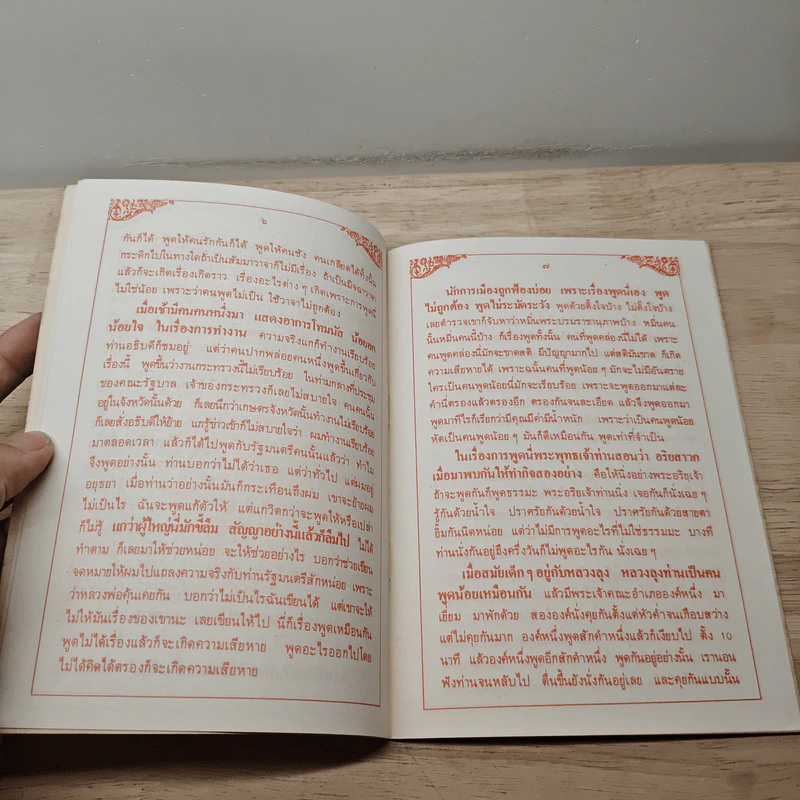 ๖
กันก็ได้ พูดให้คนรักกันก็ได้ พูดให้คนชัง คนเกลียดได้ทั้งนั้น
กระดิกไปในทางใดถ้าเป็นสัมมาวาจาก็ไม่มีเรื่อง ถ้าเป็นมิจฉาวาจา
แล้วก็จะเกิดเรื่องเกิดราว เรื่องอะไรต่างๆ เกิดเพราะการพูดนี่
ไม่ใช่น้อย เพราะว่าคนพูดไม่เป็น ใช้วาจาไม่ถูกต้อง
เมื่อเช้ามีคนคนหนึ่งมา แสดงอาการโทมนัส น้อยอก
น้อยใจ ในเรื่องการทำงาน ความจริงแกก็ทำงานเรียบร้อย
ท่านอธิบดีก็ชมอยู่ แต่ว่าคนปากพล่อยคนหนึ่งพูดขึ้นเกี่ยวกับ
เรื่องนี้ พูดขึ้นว่างานกระทรวงนี้ไม่เรียบร้อย ในท่ามกลางที่ประชุม
ของคณะรัฐบาล เจ้าของกระทรวงก็เลยไม่สบายใจ คนคนนั้น
อยู่ในจังหวัดนั้นด้วย ก็เลยนึกว่าเกษตรจังหวัดนั้นทำงานไม่เรียบร้อย
ก็เลยสั่งอธิบดีให้ย้าย แกรู้ข่าวเข้าก็ไม่สบายใจว่า ผมทำงานเรียบร้อย
มาตลอดเวลา แล้วก็ได้ไปพูดกับรัฐมนตรีคนนั้นแล้วว่า ทำไม
จึงพูดอย่างนั้น ท่านบอกว่าไม่ได้ว่าเธอ แต่ว่าทั่วไป แต่ผมอยู่
อยุธยา เมื่อท่านว่าอย่างนั้นมันก็กระเทือนถึงผม เขาจะย้ายผม
ไม่เป็นไร ฉันจะพูดแก้ตัวให้ แต่แกวิตกว่าจะพูดให้หรือเปล่า
ก็ไม่รู้ แกว่าผู้ใหญ่นี่มักขี้ลืม สัญญาอย่างนี้แล้วก็ลืมไป ไม่ได้
ทำตาม ก็เลยมาให้ช่วยหน่อย จะให้ช่วยอย่างไร บอกว่าช่วยเขียน
จดหมายให้ผมไปแถลงความจริงกับท่านรัฐมนตรีสักหน่อย เพราะ
ว่าหลวงพ่อคุ้นเคยกัน บอกว่าไม่เป็นไรฉันเขียนได้ แต่เขาจะให้
ไม่ให้มันเรื่องของเขานะ เลยเขียนให้ไป นี่ก็เรื่องพูดเหมือนกัน
พูดไม่ได้เรื่องแล้วก็จะเกิดความเสียหาย พูดอะไรออกไปโดย
ไม่ได้คิดได้ตรองก็จะเกิดความเสียหาย
๗
นักการเมืองถูกฟ้องบ่อย เพราะเรื่องพูดนี่เอง พูด
ไม่ถูกต้อง พูดไม่ระมัดระวัง พูดด้วยตั้งใจบ้าง ไม่ตั้งใจบ้าง
เลยตำรวจเขาก็จับหาว่าหมิ่นพระบรมราชานุภาพบ้าง หมิ่นคน
นั้นหมิ่นคนนี้บ้าง ก็เรื่องพูดทั้งนั้น คนที่พูดคล่องนี่ไม่ได้ เพราะ
คนพูดคล่องนี่มักจะขาดสติ มีปัญญามากไป แต่สติมันขาด ก็เกิด
ความเสียหายได้ เพราะฉะนั้นคนที่พูดน้อยๆ มักจะไม่มีอันตราย
ใครเป็นคนพูดน้อยนี่มักจะเรียบร้อย เพราะจะพูดออกมาแต่ละ
คำนี่ตรองแล้วตรองอีก ตรองกันจนละเอียด แล้วจึงพูดออกมา
พูดมาทีไรก็เรียกว่ามีคุณมีค่ามีน้ำหนัก เพราะว่าเป็นคนพูดน้อย
หัดเป็นคนพูดน้อยๆ มันก็ดีเหมือนกัน พูดเท่าที่จำเป็น
ในเรื่องการพูดนี่พระพุทธเจ้าท่านสอนว่า อริยสาวก
เมื่อมาพบกันให้ทำกิจสองอย่าง คือให้นิ่งอย่างพระอริยเจ้า
ถ้าจะพูดกันก็พูดธรรมะ พระอริยเจ้าท่านนิ่ง เจอกันก็นั่งเฉยๆ
รู้กันด้วยน้ำใจ ปราศรัยกันด้วยน้ำใจ ปราศรัยกันด้วยสายตา
ยิ้มกันนิดหน่อย แต่ว่าไม่มีการพูดอะไรที่ไม่ใช่ธรรมะ บางที
ท่านนั่งกันอยู่ถึงครึ่งวันก็ไม่พูดอะไรกัน นั่งเฉยๆ
เมื่อสมัยเด็กๆ อยู่กับหลวงลุง หลวงลุงท่านเป็นคน
พูดน้อยเหมือนกัน แล้วมีพระเจ้าคณะอำเภอองค์หนึ่ง มา
เยี่ยม มาพักด้วย สององค์นั่งคุยกันตั้งแต่หัวค่ำจนเกือบสว่าง
แต่ไม่คุยกันมาก องค์หนึ่งพูดสักคำหนึ่งแล้วก็เงียบไป ตั้ง 10
นาที แล้วองค์หนึ่งพูดอีกสักคำหนึ่ง พูดกันอยู่อย่างนั้น เรานอน
ฟังท่านจนหลับไป ตื่นขึ้นยังนั่งกันอยู่เลย และคุยกันแบบนั้น